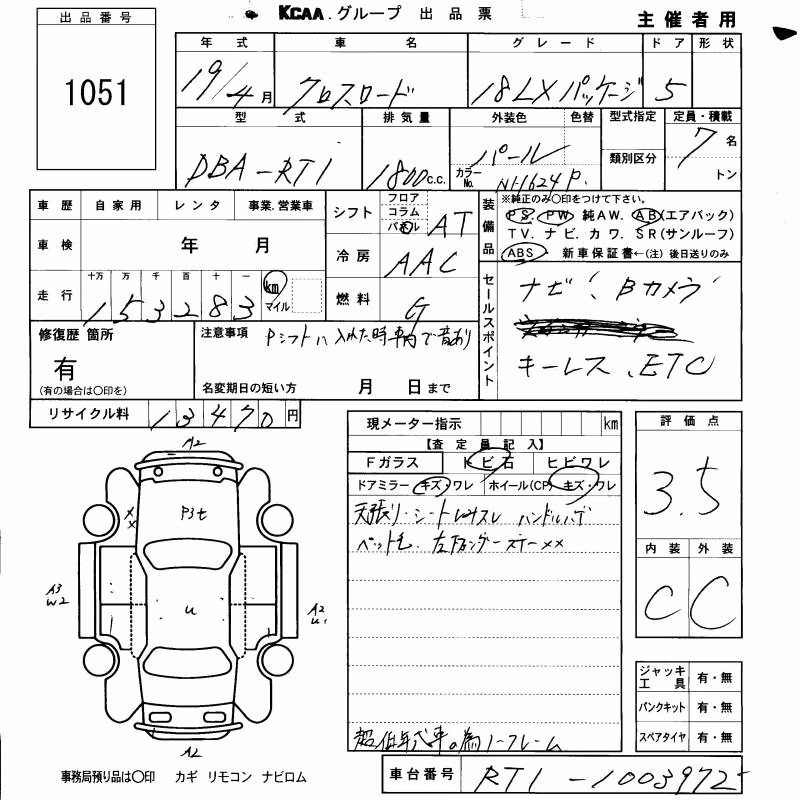 KCAA.グループ 出品票
主催者用
出品番号
1051
年式 車名 グレード ドア 形状
19/4月 クロスロード 18LXパッケージ 5
型式 排気量 外装色 色替 型式指定 定員・積載
DBA-RT1 1800c.c. パール 7名
カラーNo. NH624P. 類別区分 トン
車歴 自家用 レンタ 事業.営業車
シフト フロア コラム AT
車検 年 月
冷房 AAC
走行 十万 万 千 百 十 一 km マイル
153283
燃料 G
装備品 ※純正のみ〇印をつけて下さい。
PS. PW 純AW. AB(エアバック)
TV. ナビ. カワ. SR(サンルーフ)
ABS 新車保証書←(注) 後日送りのみ
セールスポイント
ナビ、Bカメラ
キーレス、ETC
修復歴 箇所
有
(有の場合は〇印を)
注意事項 Pシフトに入れた時車内で音あり
名変期日の短い方 月 日まで
リサイクル料 13470円
現メーター指示 km
【査定員記入】
Fガラス トビ石 ヒビワレ
ドアミラー キズ・ワレ ホイール(CP) キズ・ワレ
天張り・シート ハンドルハゲ
ペット毛.
評価点
3.5
内装 外装
C C
A2
P3t
XX
A3
W2
U
A2
U1
A2
ジャッキ工具 有・無
パンクキット 有・無
スペアタイヤ 有・無
超低年式車の為ノークレーム
事務局預り品は〇印 カギ リモコン ナビロム
車台番号 RT1-1003972